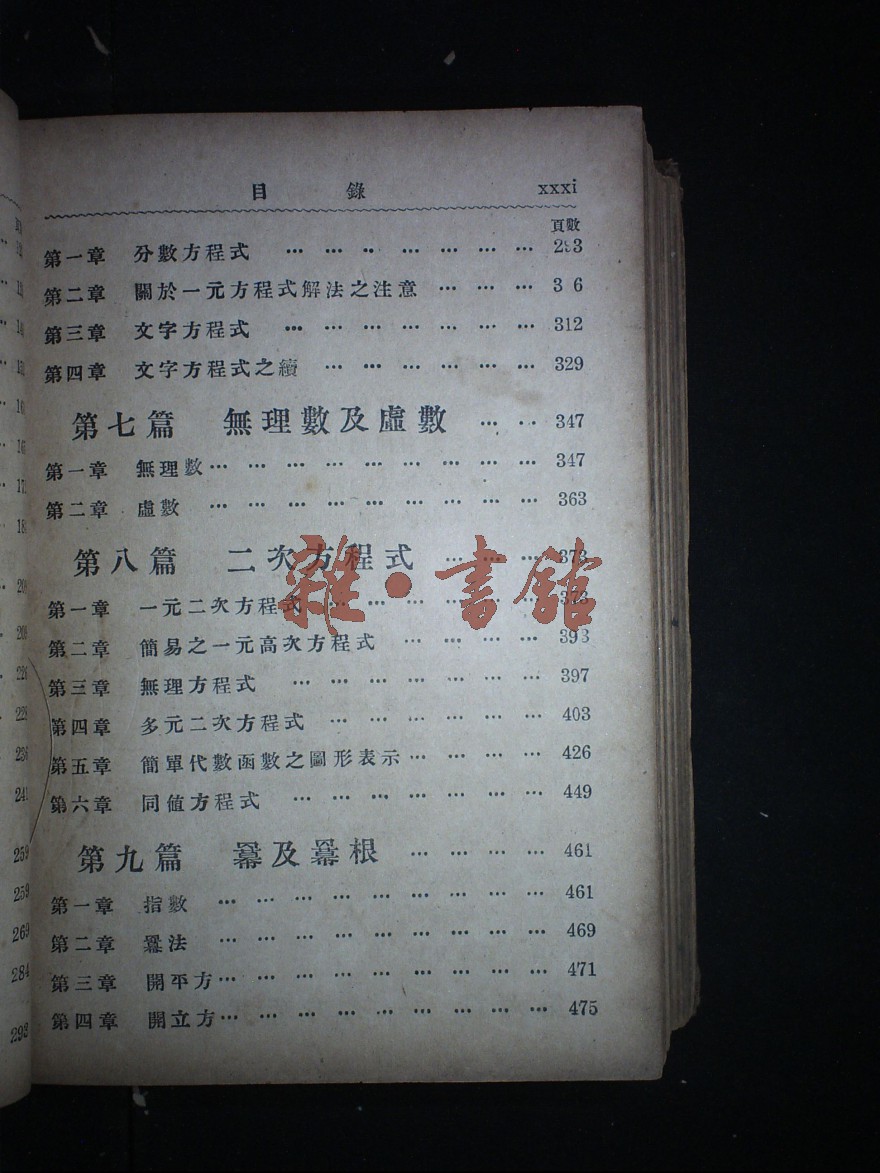 目 錄 xxxi
頁數
第一章 分數方程式 … … … … … … … 293
第二章 關於一元方程式解法之注意 … … … 3 6
第三章 文字方程式 … … … … … … … 312
第四章 文字方程式之續 … … … … … … 329
第七篇 無理數及虛數 … … 347
第一章 無理數 … … … … … … … … … 347
第二章 虛數 … … … … … … … … … 363
第八篇 二次方程式 … … … 373
第一章 一元二次方程式 … … … … … … 373
第二章 簡易之一元高次方程式 … … … … 393
第三章 無理方程式 … … … … … … … 397
第四章 多元二次方程式 … … … … … … 403
第五章 簡單代數函數之圖形表示 … … … … 426
第六章 同値方程式 … … … … … … … 449
第九篇 羃及羃根 … … … … 461
第一章 指數 … … … … … … … … … 461
第二章 羃法 … … … … … … … … … 469
第三章 開平方 … … … … … … … … … 471
第四章 開立方 … … … … … … … … … 475
雜·書館
259
259
269
284
293